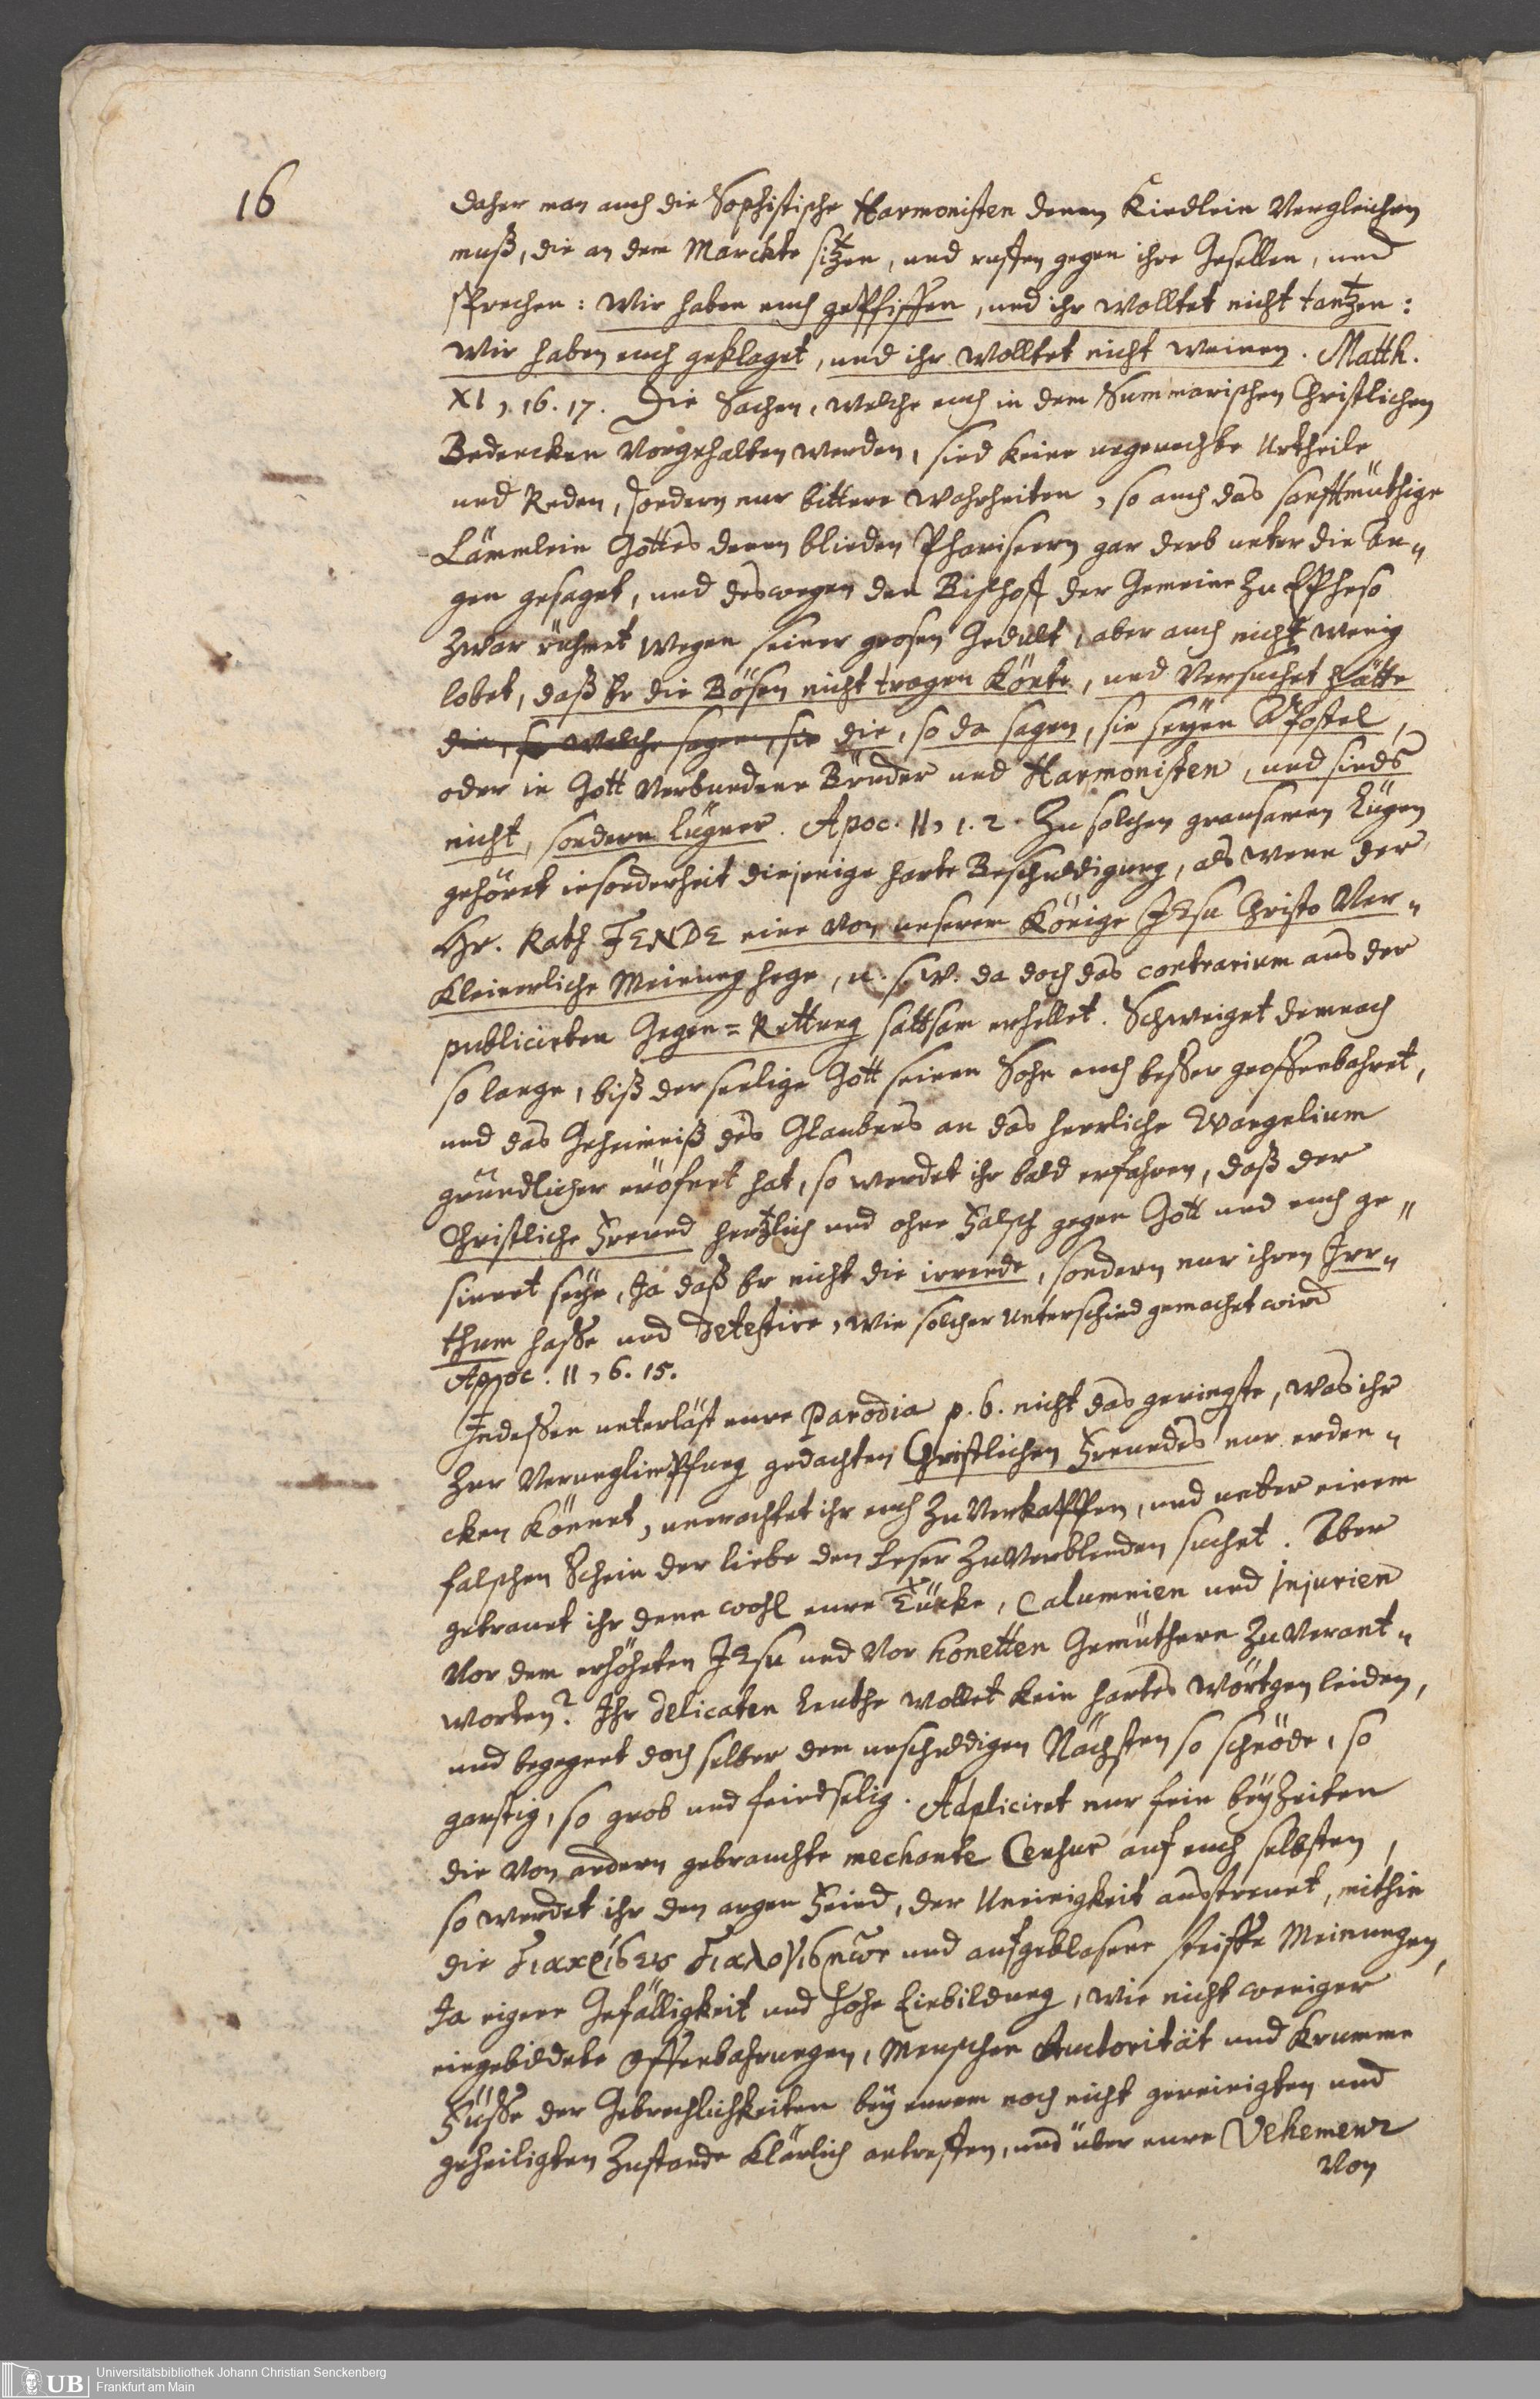 16
daher man auch die Sophistische Harmonisten denen Kindlein vergleichen
muß, die an dem Marckte sitzen, und ruffen gegen ihre Gesellen, und
sprechen: Wir haben euch gepfiffen, und ihr wolltet nicht tantzen:
Wir haben euch geklaget, und ihr wolltet nicht weinen. Matth.
XI, 16. 17. Die Sachen, welche euch in dem Summarischen Christlichen
Bedencken vorgehalten werden, sind keine ungerechte Urtheile
und Reden, sondern nur bittere Wahrheiten, so auch das sanfftmüthige
Lämmlein Gottes denen blinden Phariseern gar derb unter die Au-
gen gesaget, und deswegen den Bischoff der Gemeine zu Epheso
zwar rühmet wegen seiner grosen Gedult, aber auch nicht wenig
lobet, daß Er die Bösen nicht tragen könte, und versuchet hätte
die, so welche sagen, sie die, so da sagen, sie seyen Apostel,
oder in Gott verbundene Brüder und Harmonisten, und sinds
nicht, sondern Lügner. Apoc. II, 1. 2. Zu solchen grausamen Lügen
gehöret insonderheit diejenige harte Beschuldigung, als wenn der
Hr. Rath FENDE eine von unserem Könige JEsu Christo Ver-
kleinerliche Meinung hege, u. s. w. da doch das contrarium aus der
publicirten Gegen-Rettung sattsam erhellet. Schweiget demnach
so lange, biß der seelige Gott seinen Sohn euch besser geoffenbahret,
und das Geheimniß des Glaubens an das herrliche Evangelium
gründlicher eröfnet hat, so werdet ihr bald erfahren, daß der
Christliche Freund hertzlich und ohne Falsch gegen Gott und euch ge-
sinnet seye, Ja daß Er nicht die irrende, sondern nur ihren Irr-
thum hasse und detestire, wie solcher Unterschied gemachet wird
Apoc. II, 6. 15.
Indessen unterläst eure Parodia p. 6. nicht das geringste, was ihr
zur Verunglimpffung gedachten Christlichen Freundes nur erden-
cken könnet, unerachtet ihr euch zu verkappen, und unter einem
falschen Schein der Liebe den Leser zu verblenden suchet. Aber
getrauet ihr denn wohl eure Tücke, Calumnien und Injurien
vor dem erhöheten JEsu und vor honetten Gemüthern zu verant-
worten? Ihr delicaten Leuthe wollet kein hartes Wörtgen leiden,
und begegnet doch selber dem unschuldigen Nächsten so schnöde, so
garstig, so grob und feindselig. Adpliciret nur fein bey Zeiten
die von andern gebrauchte mechante Censur auf euch selbsten,
so werdet ihr den argen Feind, der Uneinigkeit ausstreuet, mithin
die διακρίσεις διαλογισμῶν und aufgeblasene steiffe Meinungen,
Ja eigene Gefälligkeit und hohe Einbildung, wie nicht weniger
eingebildete Offenbahrungen, Menschen Auctorität und krumme
Füsse der Gebrechlichkeiten bey eurem noch nicht gereinigten und
geheiligten Zustande klärlich antreffen, und über eure Vehemenz
von
Universitätsbibliothek Johann Christian Senckenberg
Frankfurt am Main
UB